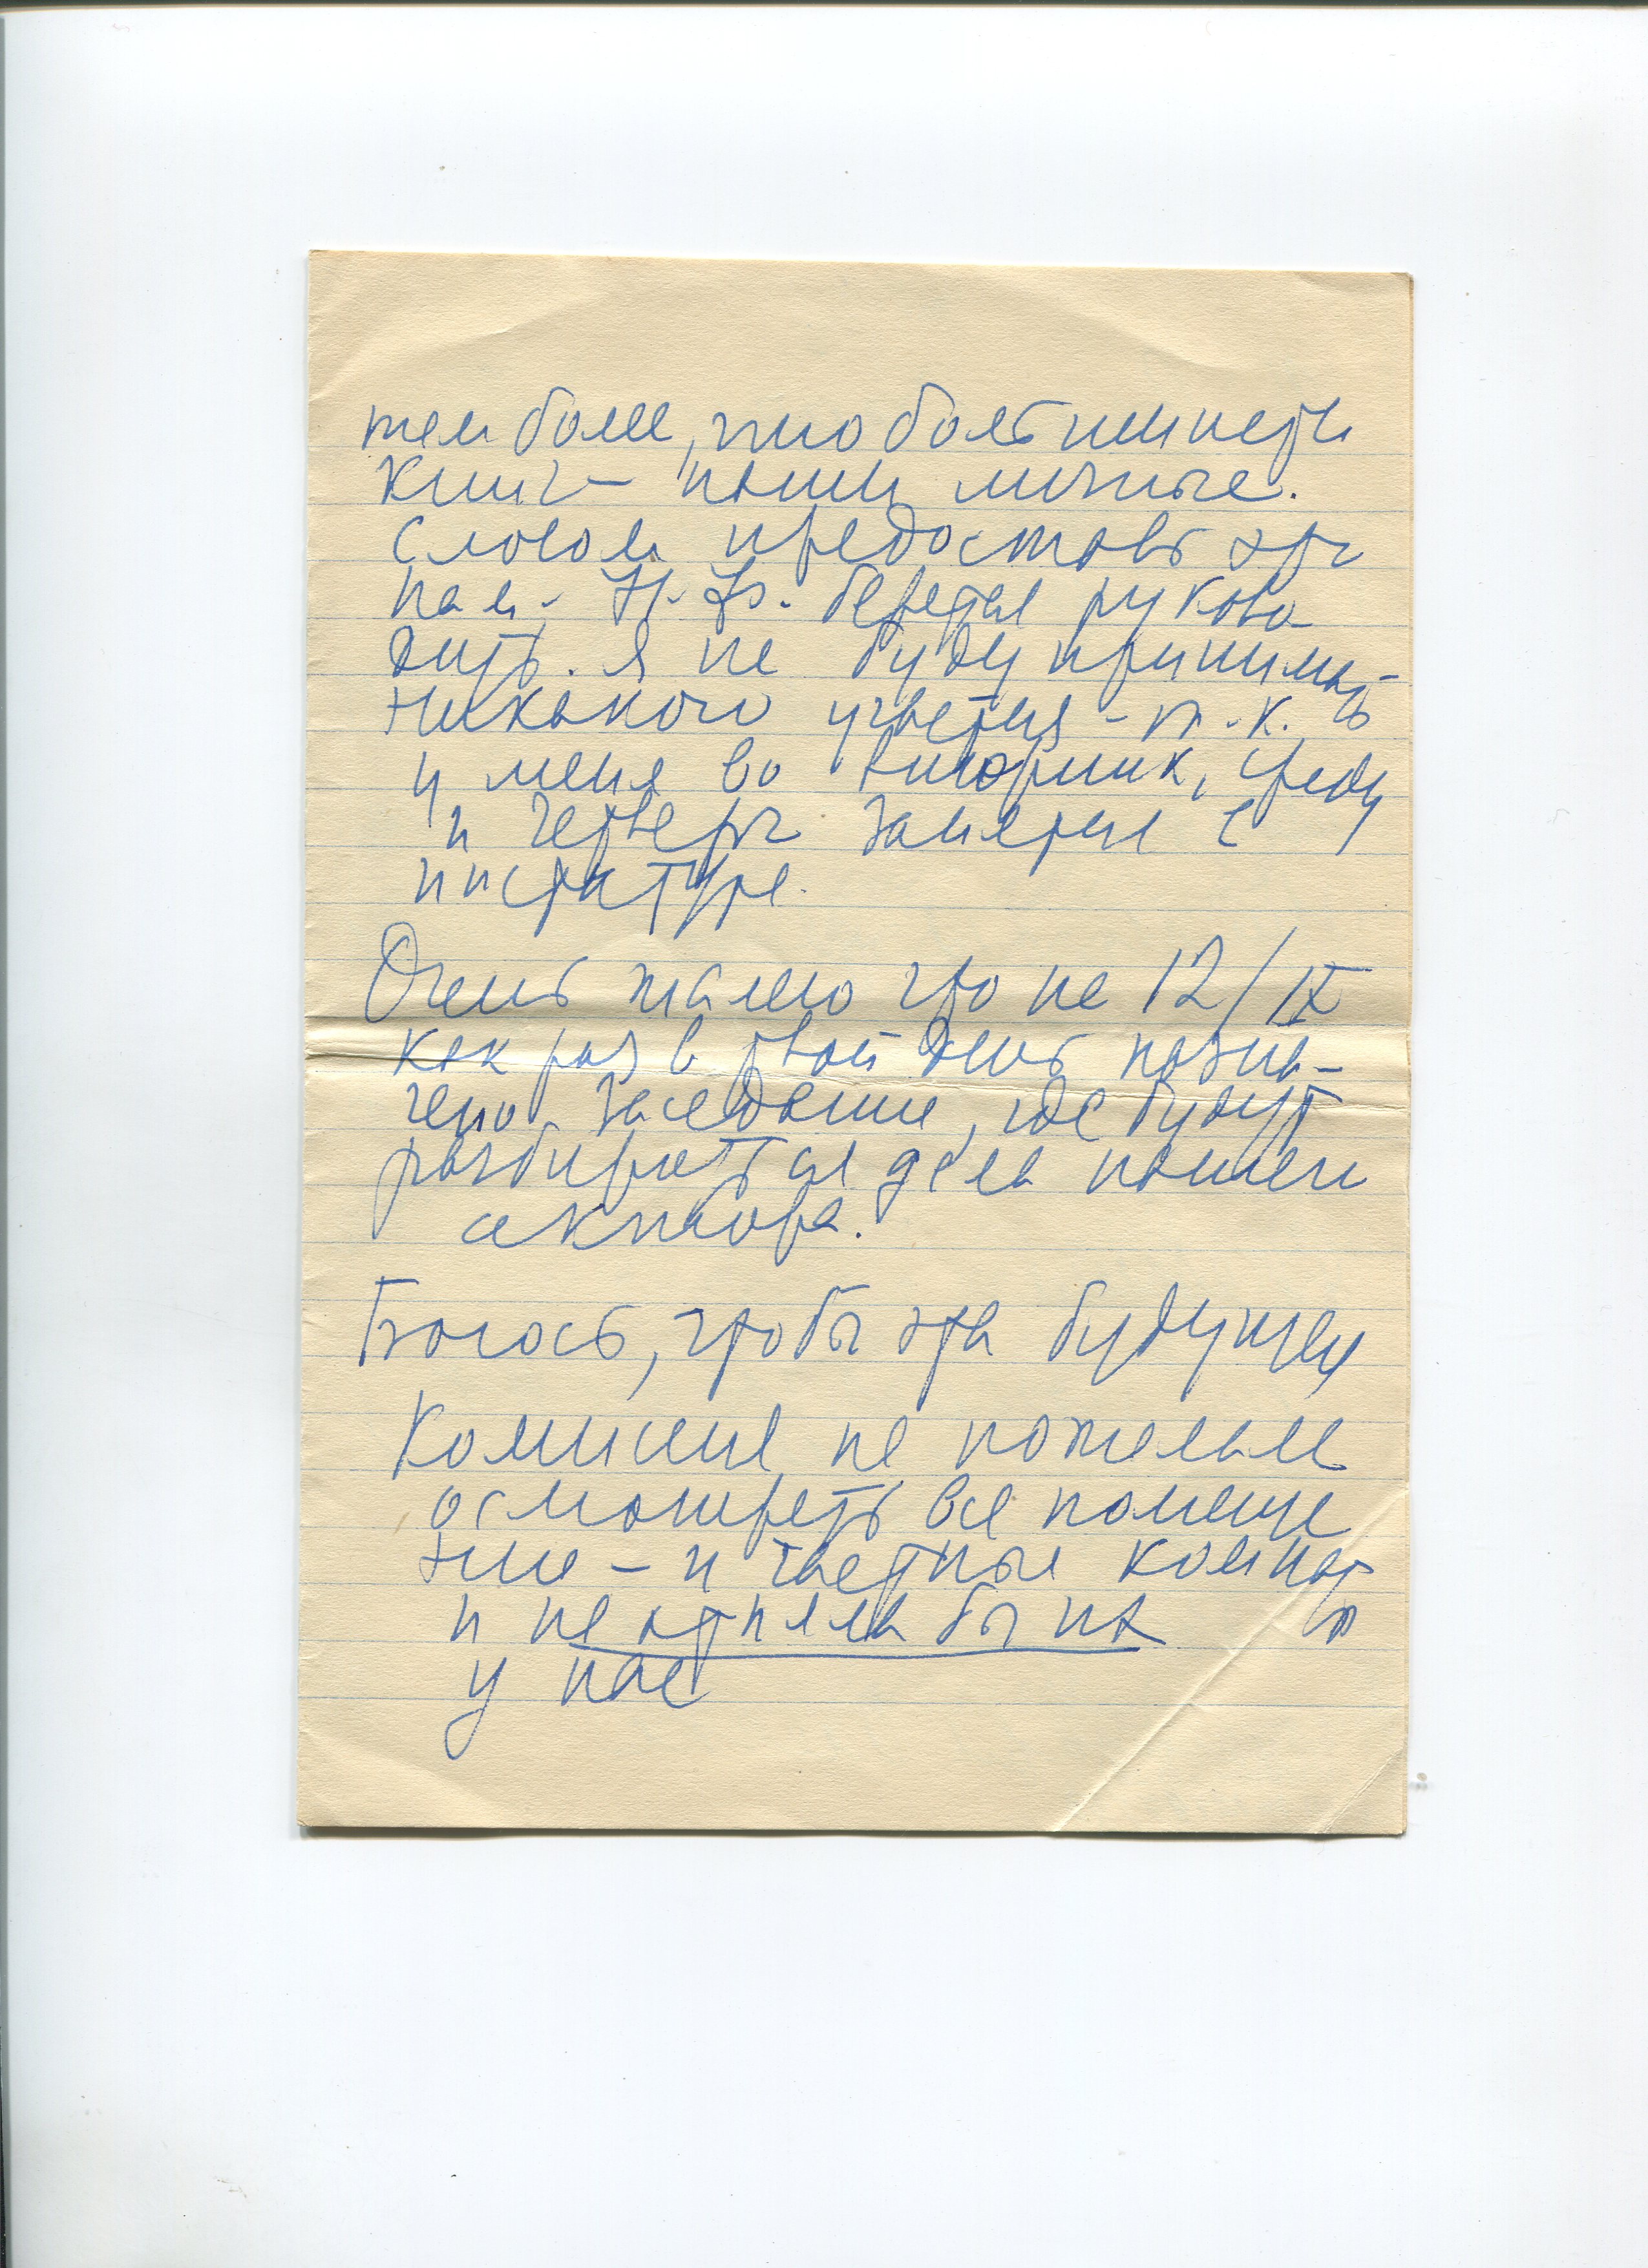 тем более, что большинство
книг – наши личные.
Словом предоставь это
нам. Н.Ф. берется руково-
дить. Я не буду принимать
никакого участия – т.к.
у меня во вторник, среду
и четверг занятия в
Очень жалею что не 12/IX
как раз в твой день назна-
чено заседание, где будут
разбираться дела нашего
сектора.
Боюсь, чтобы эта будущая
Комиссия не пожелала
осмотреть все помеще
ние – и частные комнаты
и не отняла бы их
у нас